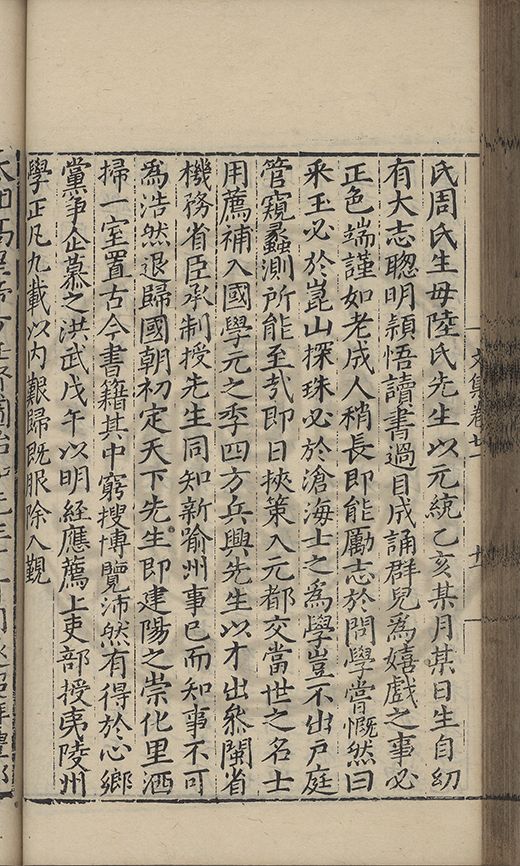 文集卷
氏周氏生母陸氏先生以元統乙亥某月某日生自幼
有大志聰明頴悟讀書過目成誦群兒為嬉戲之事必
正色端謹如老成人稍長即能勵志於問學嘗慨然曰
采玉必於崑山探珠必於滄海士之為學豈不出戸庭
管窺蠡測所能至㢤即日挾策入元都交當世之名士
用薦補入國學元之季四方兵興先生以才出叅閩省
機務省臣承制授先生同知新喻州事巳而知事不可
爲浩然退歸國朝初定天下先生即建陽之崇化里洒
掃一室置古今書籍其中窮搜博覽沛然有得於心鄉
黨爭企慕之洪武戊午以明經應薦上吏部授夷陵州
學正凡九載以内艱歸既服除入覲